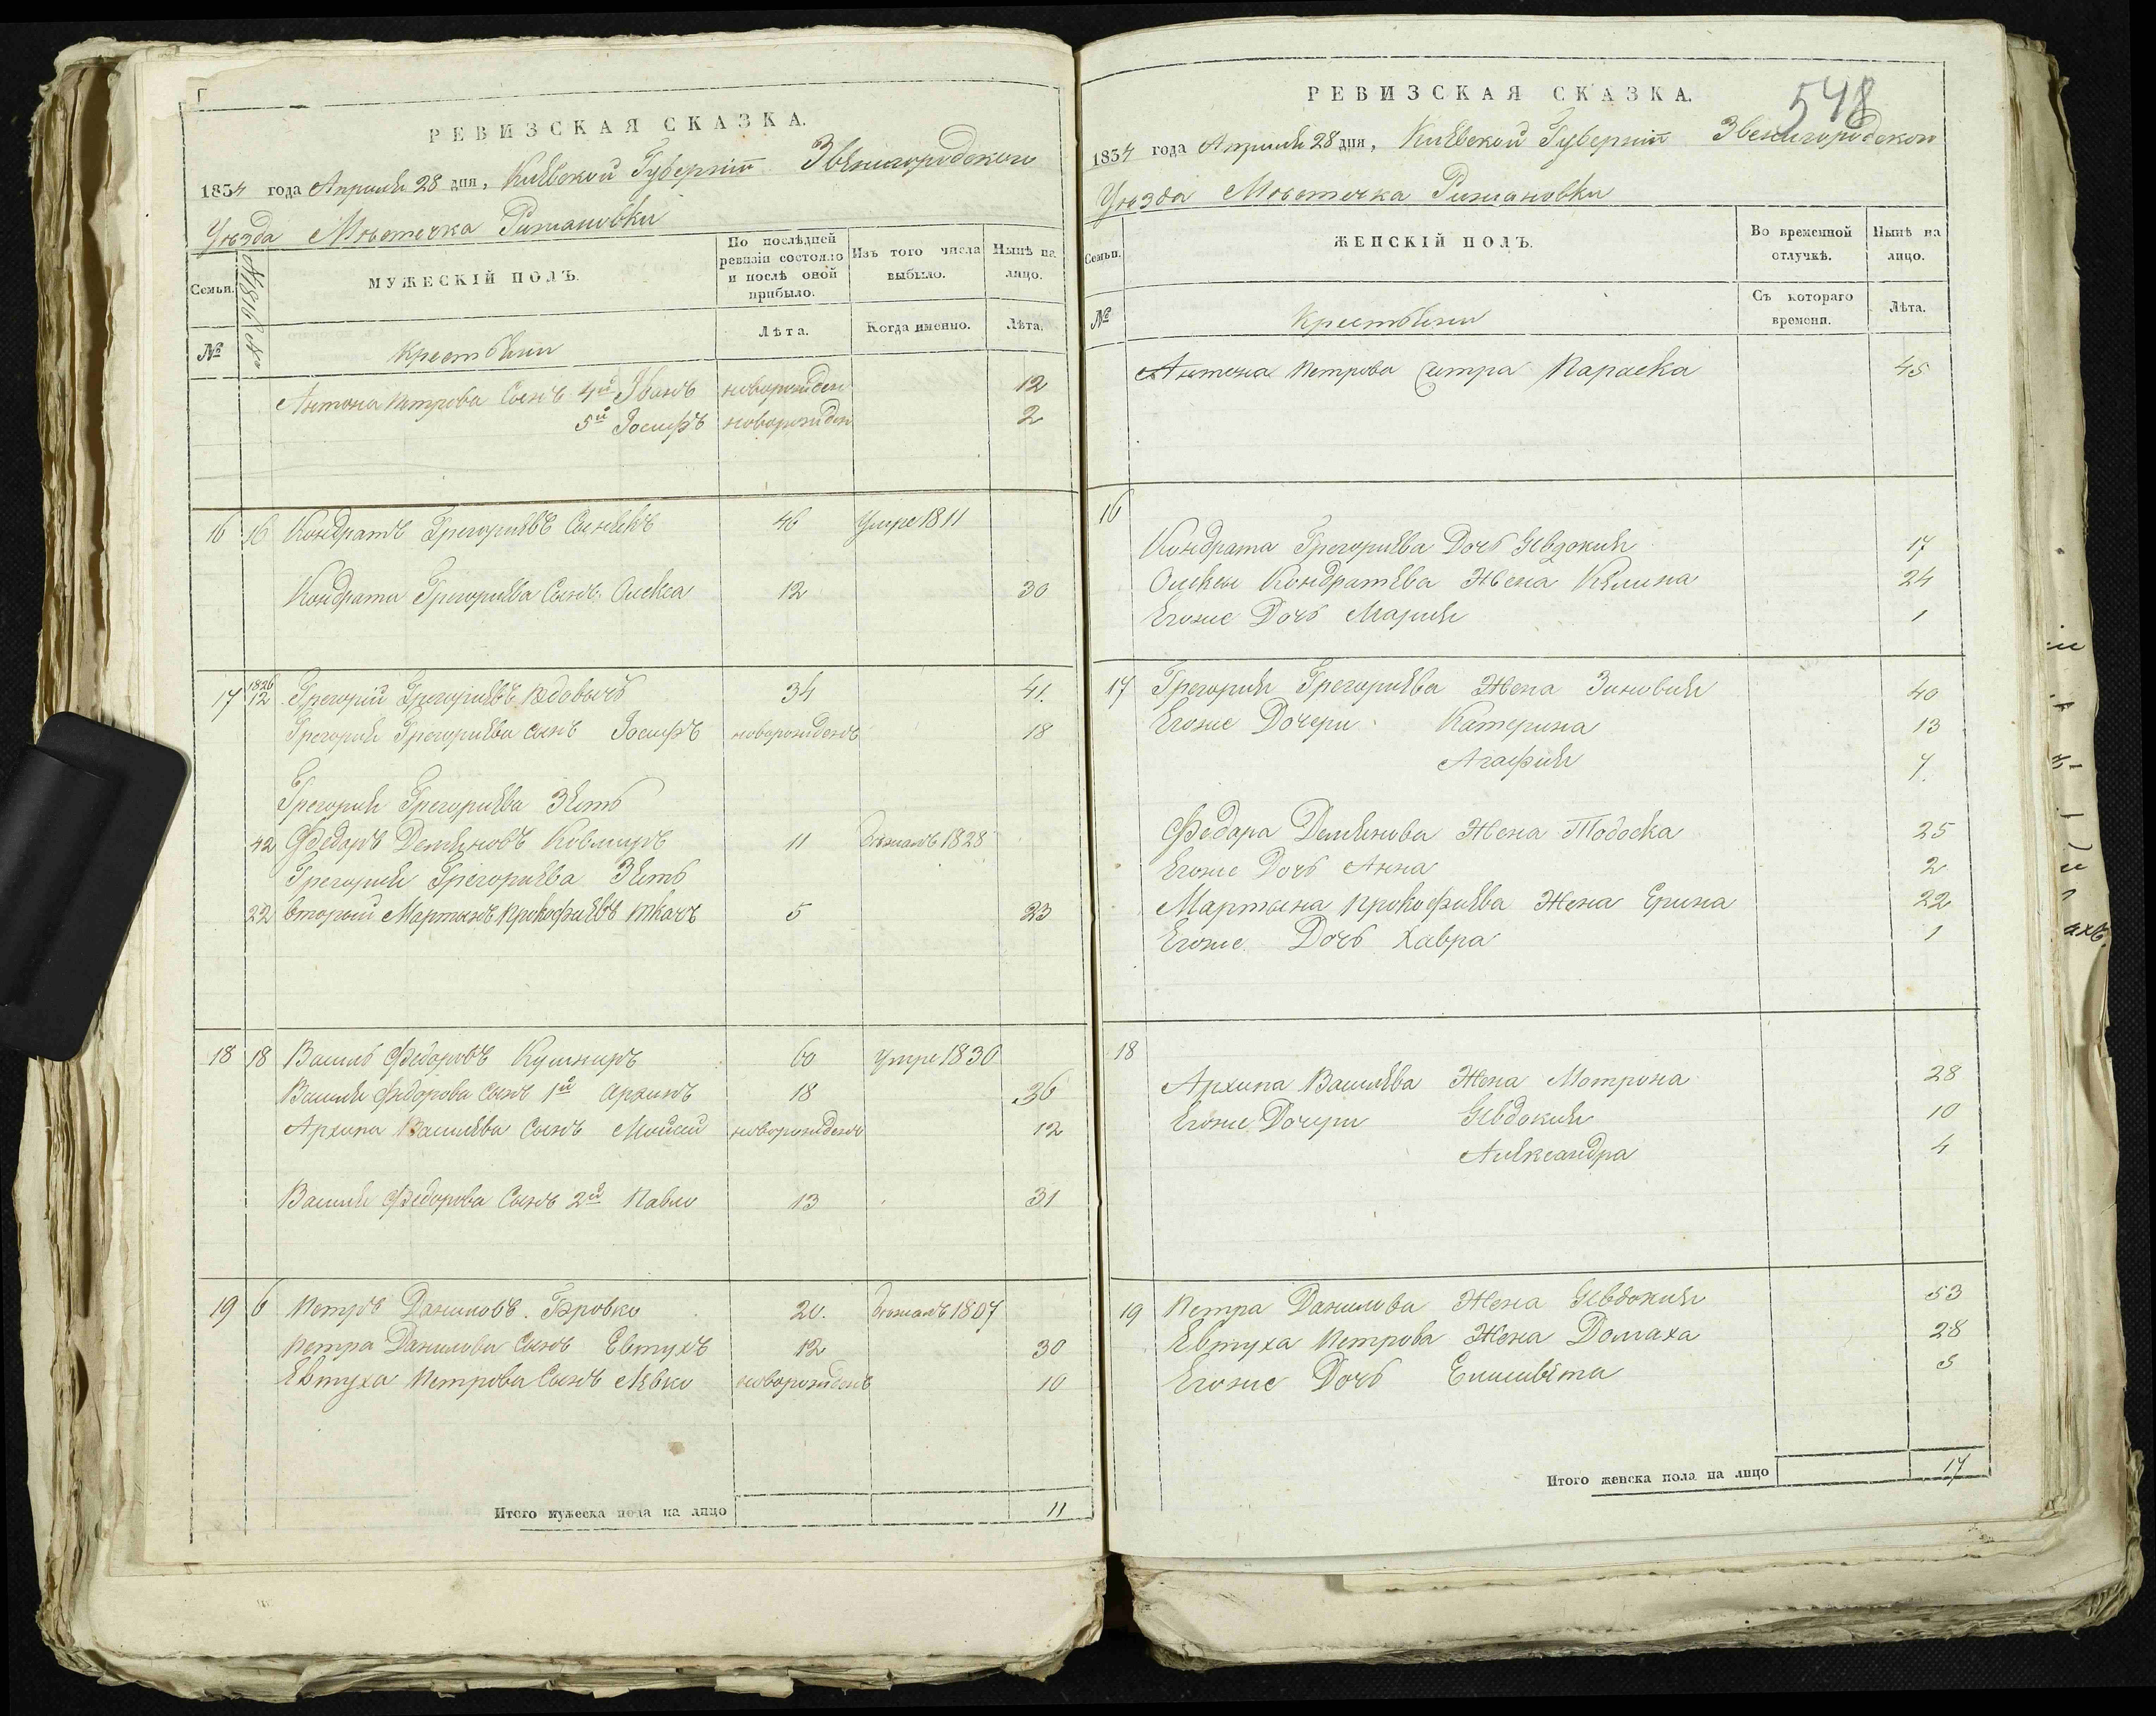 РЕВИЗСКАЯ СКАЗКА.
1834 года Апреля 28 дня, Киевской Губернии Звенигородского
Уезда Местечка Рижановки
Семьи.
№
МУЖЕСКІЙ ПОЛЪ.
Крестьяни
По послѣдней ревизіи состояло и послѣ оной прибыло.
Лѣта.
Изъ того числа выбыло.
Когда именно.
Нынѣ на лицо.
Лѣта.
Антона Петрова Сынъ 4й Иванъ новорожден 12
5й Іосифъ новорожден 2
16 16 Кондратъ Григориевъ 46 Умре 1811
Кондрата Григориева Сынъ Олекса 12 30
17 1826 12 Григорий Григориевъ Вдовычъ 34 41.
Григория Григориева сынъ Іосифъ новорожденъ 18
Григория Григориева Зять
42 Федоръ Демяновъ 11 1828
Григория Григориева Зять
22 вторый Мартынъ Прокофиевъ Ткачъ 5 23
18 18 Василь Федоровъ Кушниръ 60 умре 1830
Василя Федорова Сынъ 1й Архипъ 18 36
Архипа Василева Сынъ Мойсей новорожденъ 12
Василя Федорова Сынъ 2й Павло 13 31
19 6 Петръ Даниловъ 20. 1807
Петра Данилова Сынъ Евтухъ 12 30
Евтуха Петрова Сынъ Левко новорожденъ 10
Итого мужеска пола на лицо 11
548
РЕВИЗСКАЯ СКАЗКА.
1834 года Апреля 28 дня, Киевской Губернии Звенигородского
Уезда Местечка Рижановки
Семьи.
№
ЖЕНСКІЙ ПОЛЪ.
Крестьяни
Во временной отлучкѣ.
Съ котораго времени.
Нынѣ на лицо.
Лѣта.
Антона Петрова Сестра Параска 45
16
Кондрата Григориева Дочь Гевдокия 17
Олексы Кондратева Жена Келина 24
Егоже Дочь Мария 1
17 Григория Григориева Жена Зиновия 40
Егоже Дочери Катерина 13
Агафия 7.
Федора Демянова Жена Тодоска 25
Егоже Дочь Анна 2
Мартына Прокофиева Жена Ерина 22
Егоже Дочь Хавра 1
18
Архипа Василева Жена Мотрона 28
Егоже Дочери Гевдокия 10
Александра 4
19 Петра Данилова Жена Гевдокия 53
Евтуха Петрова Жена Домаха 28
Егоже Дочь Елисавета 5
Итого женска пола на лицо 17